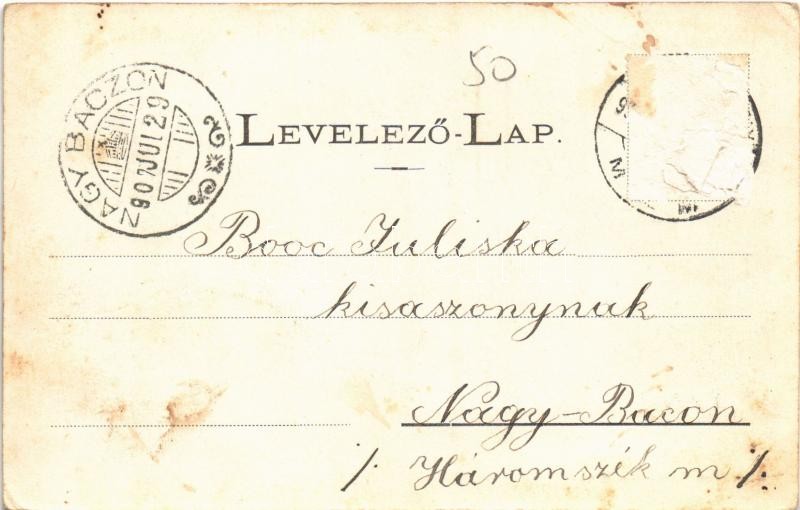 50
NAGY BACZON
907 JUL 29
LEVELEZŐ-LAP.
Booc Juliska
kisaszonynak
Nagy-Bacon
/. Háromszék m /.
M